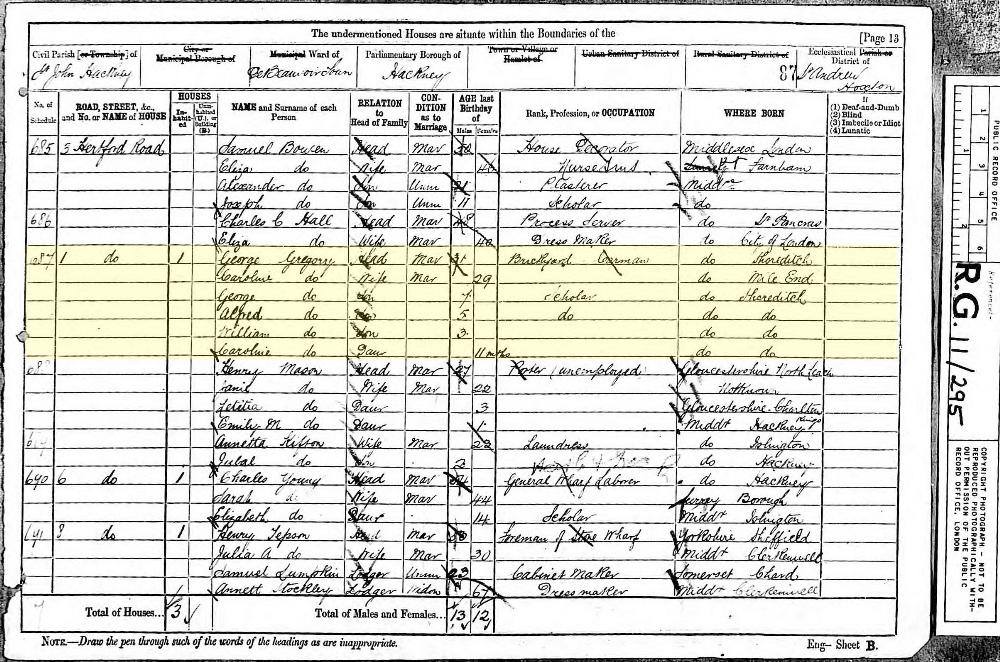 The undermentioned Houses are situate within the Boundaries of the
[Page 13
Civil Parish [or Township] of
St John Hackney
City or
Municipal Borough of
Municipal Ward of
De Beauvoir Town
Parliamentary Borough of
Hackney
Town or Village or
Hamlet of
Urban Sanitary District of
Rural Sanitary District of
87
Ecclesiastical Parish or
District of
St Andrew
Hoxton
No. of Schedule
ROAD, STREET, &c., and No. or NAME of HOUSE
HOUSES
In-habit-ed
Un-inhabited (U.), or Building (B.)
NAME and Surname of each Person
RELATION to Head of Family
CON-DITION as to Marriage
AGE last Birthday of
Males
Females
Rank, Profession, or OCCUPATION
WHERE BORN
If
(1) Deaf-and-Dumb
(2) Blind
(3) Imbecile or Idiot
(4) Lunatic
685 3 Hertford Road Samuel Bowen Head Mar House Decorator Middlesex London
Eliza do Wife Mar Farnham
Alexander do Son Unm 21 Plasterer Middx
Joseph do Son Unm 11 Scholar do
686 Charles C Hall Head Mar 48 Process Server do St Pancras
Eliza do Wife Mar 40 Dress Maker do City of London
687 1 do 1 George Gregory Head Mar 31 Brickyard Carman do Shoreditch
Caroline do Wife Mar 29 do Mile End
George do Son 7 Scholar do Shoreditch
Alfred do Son 5 do do do
William do Son 3 do do
Caroline do Daur 11 mths do do
688 Henry Mason Head Mar 27 Porter (unemployed) Gloucestershire North Leach
do Wife Mar 22 Not Known
Letitia do Daur 3 Gloucestershire Charlton Kings
Emily M. do Daur 1 Middx Hackney
Annetta Kitson Wife Mar 22 Laundress do Islington
Jubal do Son 2 do Hackney
690 6 do 1 Charles Young Head Mar General Wharf Laborer do Hackney
Sarah do Wife Mar 44 Surrey Borough
Elizabeth do Daur 14 Scholar Middx Islington
691 3 do 1 Henry Jepson Head Mar 38 Foreman of Stone Wharf Yorkshire Sheffield
Julia A do Wife Mar 30 Middx Clerkenwell
Samuel Lumpkin Lodger Unm 23 Cabinet Maker Somerset Chard
Annett Stockley Lodger Widow 67 Dressmaker Middx Clerkenwell
Total of Houses... 3
Total of Males and Females... 13 12
NOTE.—Draw the pen through such of the words of the headings as are inappropriate.
Eng- Sheet B.
PUBLIC RECORD OFFICE
1 2 3 4 5 6
Reference:-
R.G. 11/295
COPYRIGHT PHOTOGRAPH - NOT TO BE
REPRODUCED PHOTOGRAPHICALLY WITH-
OUT PERMISSION OF THE PUBLIC
RECORD OFFICE, LONDON